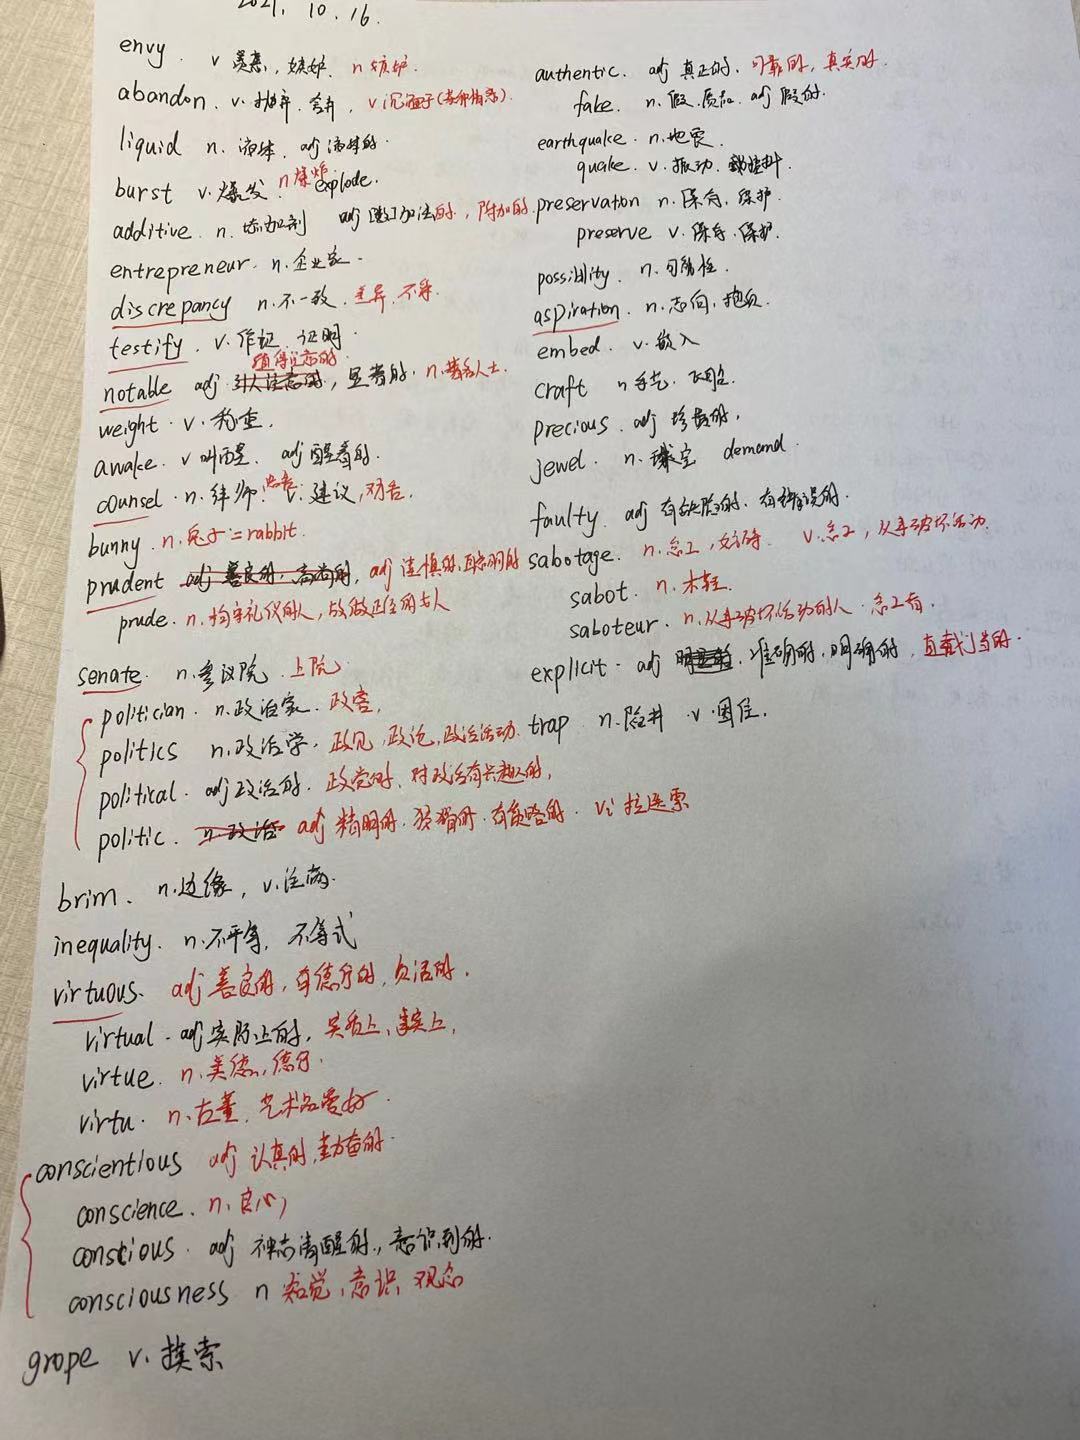 2021. 10. 16.
envy. v 羡慕, 嫉妒. n 嫉妒.
abandon. v. 抛弃. 舍弃, v 沉湎于(某种情感).
liquid n. 液体. adj 液体的.
burst v. 爆发. n 爆炸 explode.
additive. n. 添加剂 adj [数]加法的, 附加的.
entrepreneur. n. 企业家.
discrepancy n. 不一致. 差异, 不符.
testify. v. 作证. 证明.
notable adj. 值得注意的, 显著的. n. 著名人士.
weight. v. 称重.
awake. v 叫醒. adj 醒着的.
counsel. n. 律师. 忠告 v. 建议, 劝告.
bunny. n. 兔子 = rabbit.
prudent adj 善良的, 高尚的, adj 谨慎的. 聪明的
prude. n. 拘守礼仪的人, 故做正经的女人
senate. n. 参议院. 上院.
politician. n. 政治家. 政客.
politics n. 政治学. 政见, 政论, 政治活动.
political. adj 政治的. 政党的. 对政治有兴趣的.
politic. n. 政治 adj 精明的. 狡猾的. 有策略的. vi 拉选票
brim. n. 边缘, v. 注满.
inequality. n. 不平等, 不等式
virtuous. adj 善良的, 有德行的, 贞洁的.
virtual. adj 实际上的, 实质上, 事实上.
virtue. n. 美德, 德行.
virtu. n. 古董. 艺术品爱好.
conscientious adj 认真的, 勤奋的.
conscience. n. 良心
conscious. adj 神志清醒的., 意识到的.
consciousness n 知觉, 意识, 观念
grope v. 摸索
authentic. adj 真正的. 可靠的, 真实的.
fake. n. 假. 质品. adj 假的.
earthquake. n. 地震.
quake. v. 振动.
preservation n. 保存, 保护.
preserve v. 保存. 保护.
possiblity. n. 可能性.
aspiration. n. 志向, 抱负.
embed. v. 嵌入
craft n 手艺.
precious. adj 珍贵的,
jewel. n. 珠宝 demand.
faulty. adj 有缺陷的. 有错误的.
sabotage. n. 怠工, 妨碍. v. 怠工, 从事破坏活动.
sabot. n. 木鞋.
saboteur. n. 从事破坏活动的人. 怠工者.
explicit. adj 准确的. 明确的, 直截了当的.
trap n. 陷井. v. 困住.